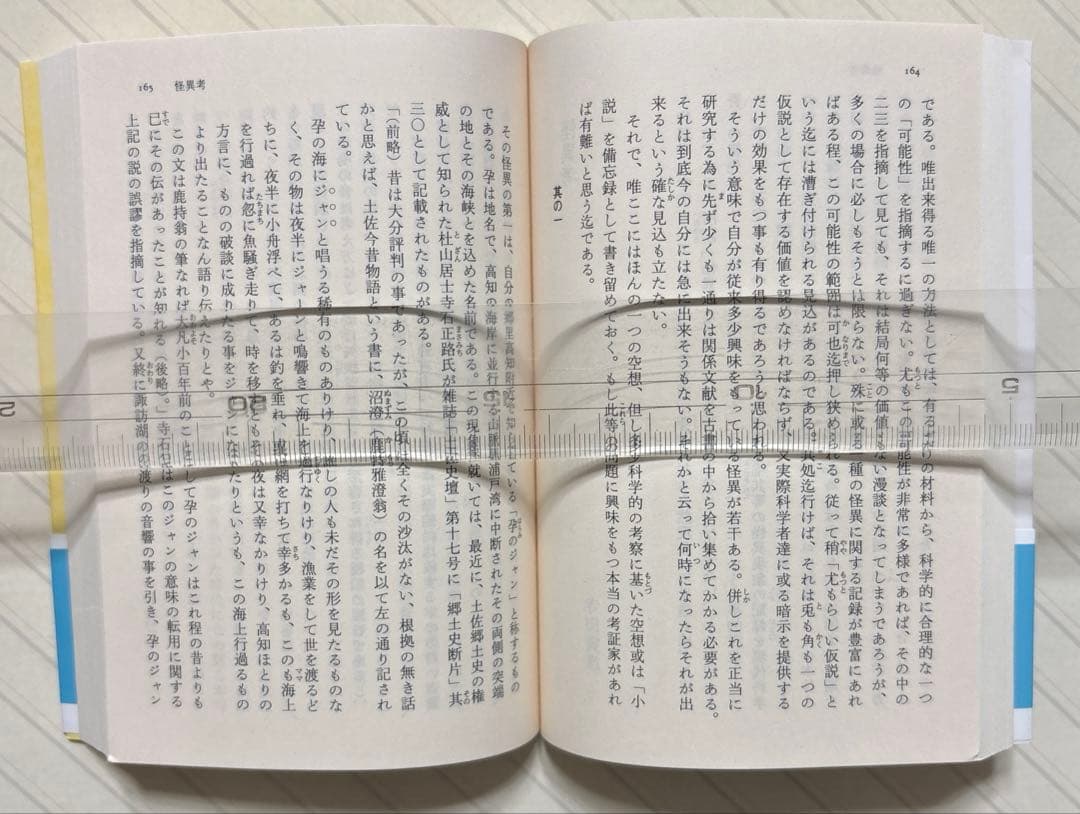 164
である。唯出来得る唯一の方法としては、有るだけの材料から、科学的に合理的な一つ
の「可能性」を指摘するに過ぎない。尤もこの可能性が非常に多様であれば、その中の
二三を指摘して見ても、それは結局何等の価値もない漫談となってしまうであろうが、
多くの場合に必しもそうとは限らない。殊に或る種の怪異に関する記録が豊富にあれ
ばある程、この可能性の範囲は可也迄押し狭められる。従って稍「尤もらしい仮説」と
いう迄には漕ぎ付けられる見込があるのである。其処迄行けば、それは兎も角も一つの
仮説として存在する価値を認めなければならず、又実際科学者達に或る暗示を提供する
だけの効果をもつ事も有り得るであろうと思われる。
そういう意味で自分が従来多少興味をもっている怪異が若干ある。併しこれを正当に
研究する為に先ず少くも一通りは関係文献を古書の中から拾い集めてかかる必要がある。
それは到底今の自分には急に出来そうもない。それかと云って何時になったらそれが出
来るという確な見込も立たない。
それで、唯ここにはほんの一つの空想、但し多少科学的の考察に基いた空想或は「小
説」を備忘録として書き留めておく。もし此等の問題に興味をもつ本当の考証家があれ
ば有難いと思う迄である。
其の一
165 怪異考
その怪異の第一は、自分の郷里高知附近で知られている「孕のジャン」と称するもの
である。孕は地名で、高知の海岸に並行する山脈が浦戸湾に中断されたその両側の突端
の地とその海峡とを込めた名前である。この現象に就いては、最近に、土佐郷土史の権
威として知られた杜山居士寺石正路氏が雑誌「土佐史壇」第十七号に「郷土史断片」其
三〇として記載されたものがある。
「(前略)昔は大分評判の事であったが、この頃は全くその沙汰がない、根拠の無き話
かと思えば、土佐今昔物語という書に、沼澄(鹿持雅澄翁)の名を以て左の通り記され
ている。
孕の海にジャンと唱うる稀有のものありけり、誰しの人も未だその形を見たるものな
く、その物は夜半にジャーンと鳴響きて海上を過行なりけり、漁業をして世を渡るど
ちに、夜半に小舟浮べて、あるは釣を垂れ、或は網を打ちて幸多かるも、このも海上
を行過れば忽に魚騒ぎ走りて、時を移すともその夜は又幸なかりけり、高知ほとりの
方言に、ものの破談に成りたる事をジャンになりたりというも、この海上行過るもの
より出たることなん語り伝えたりとや。
この文は鹿持翁の筆なれば大凡小百年前のことにして孕のジャンはこれ程の昔よりも
已にその伝があったことが知れる(後略。」寺石氏はこのジャンの意味の転用に関する
上記の説の誤謬を指摘している。又終に諏訪湖の氷渡りの音響の事を引き、孕のジャン